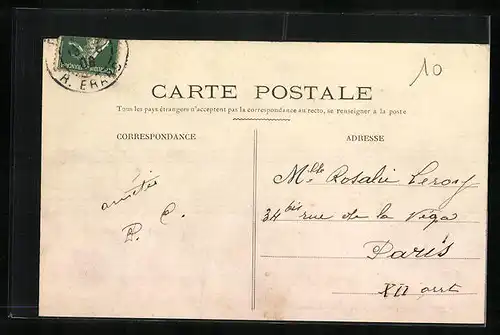 10
R. ERR
CARTE POSTALE
Tous les pays étrangers n'acceptent pas la correspondance au recto, se renseigner à la poste
CORRESPONDANCE
ADRESSE
amitiés
P. C.
Mlle Rosalie Leroy
34 bis rue de la Véga
Paris
XII arrt